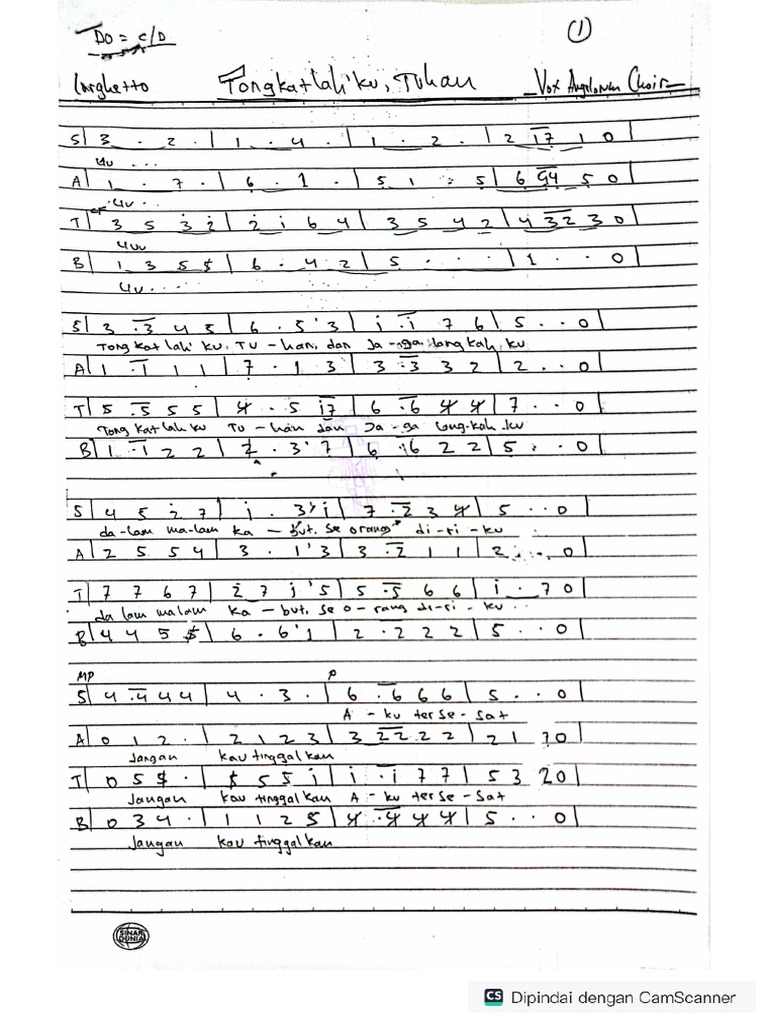 Do = C/D
(1)
Larghetto Tongkatlah'ku, Tuhan Vox Angelorum Choir
S| 3 . 2 . | 1 . 4 . | 1 . 2 . | 2 17 1 0 |
uu ...
A| 1 . 7 . | 6 . 1 . | 5 1 . 5 | 6 54 5 0 |
uu ...
T| 3 5 3 2 | 2 1 6 4 | 3 5 4 2 | 4 32 3 0 |
uuu
B| 1 3 5 5 | 6 . 4 2 | 5 . . . | 1 . . 0 |
uu ...
S| 3 .3 4 5 | 6 . 5 ' 3 | i .i 7 6 | 5 . . 0 |
Tongkatlah' ku, Tu - han, dan Ja - nga langkah ku
A| 1 .1 1 1 | 7 . 1 3 | 3 .3 3 2 | 2 . . 0 |
T| 5 .5 5 5 | 4 . 5 i7 | 6 .6 4 4 | 7 . . 0 |
Tong kat lah ku Tu - han dan Ja - ga lang-kah ku
B| 1 .1 2 2 | 2 . 3 ' 7 | 6 .6 2 2 | 5 . . 0 |
S| 4 5 2 7 | i . 3 ' i | 7 .2 3 4 | 5 . . 0 |
da-lam ma-lam ka - but, se orang di-ri-ku
A| 2 5 5 4 | 3 . 1 ' 3 | 3 .2 1 1 | 2 . . 0 |
T| 7 7 6 7 | 2 7 i ' 5 | 5 .5 6 6 | i . 7 0 |
da lam malam ka - but, se o - rang di-ri - ku ..
B| 4 4 5 5 | 6 . 6 ' 1 | 2 .2 2 2 | 5 . . 0 |
MP P
S| 4 .4 4 4 | 4 . 3 . | 6 .6 6 6 | 5 . . 0 |
A - ku ter se - sat
A| 0 1 2 . | 2 1 2 3 | 3 22 2 2 | 2 1 7 0 |
Jangan kau tinggal kan
T| 0 5 5 . | 5 5 5 i | i .i 7 7 | 5 3 2 0 |
Jangan kau tinggal kan A - ku ter se - sat
B| 0 3 4 . | 1 1 2 5 | 4 .4 4 4 | 5 . . 0 |
Jangan kau tinggal kan
SINAR DUNIA
CS Dipindai dengan CamScanner